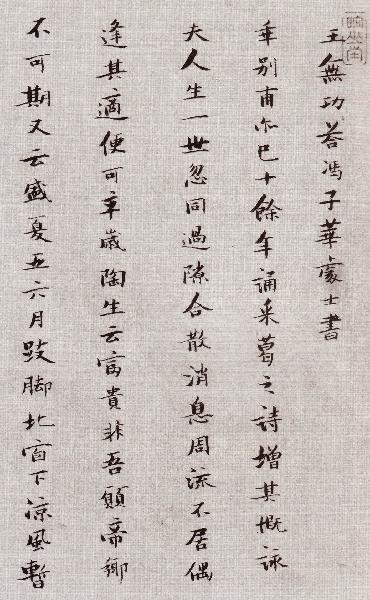 王無功荅馮子華處士書
乖別甫尔已十餘年誦采葛之詩增其慨詠
夫人生一世忽同過隙合散消息周流不居偶
逢其適便可卒歲陶生云富貴非吾願帝鄉
不可期又云盛夏五六月跂脚北窗下涼風暫